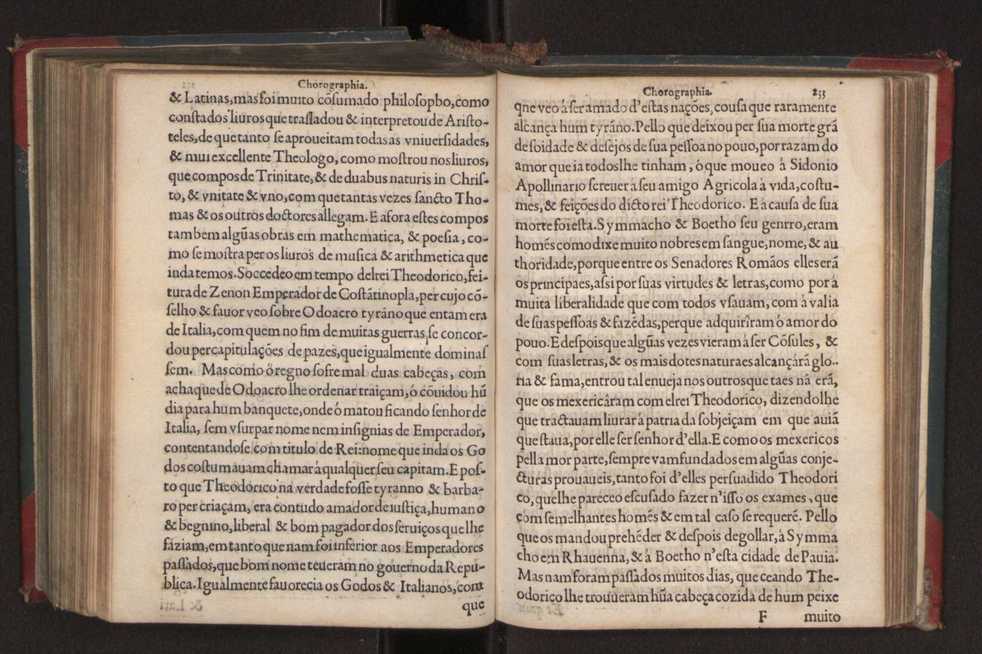 Chorographia.
& Latinas, mas foi muito cõsumado philosopho, como
constados liuros que trasladou & interpretou de Aristo-
teles, de que tanto se aproueitam todas as vniuersidades,
& mui excellente Theologo, como mostrou nos liuros,
que compos de Trinitate, & de duabus naturis in Chris-
to, & vnitate & vno, com que tantas vezes sancto Tho-
mas & os outros doctores allegam. E afora estes compos
tambem algũas obras em mathematica, & poesia, co-
mo se mostra per os liuros de musica & arithmetica que
inda temos. Soccedeo em tempo delrei Theodorico, fei-
tura de Zenon Emperador de Costãtinopla, per cujo cõ-
selho & fauor veo sobre Odoacro tyrãno que entam era
de Italia, com quem no fim de muitas guerras, se concor-
dou per capitulações de pazes, que igualmente dominas
sem. Mas como ò regno sofre mal duas cabeças, com
achaque de Odoacro lhe ordenar traiçam, ò cõuidou hũ
dia para hum banquete, onde ò matou ficando senhor de
Italia, sem vsurpar nome nem insignias de Emperador,
contentandose com titulo de Rei: nome que inda os Go
dos costumauam chamar à qualquer seu capitam. E pos-
to que Theodorico na verdade fosse tyranno & barba-
ro per criaçam, era contudo amador de iustiça, humano
& begnino, liberal & bom pagador dos seruiços que lhe
faziam, em tanto que nam foi inferior aos Emperadores
passados, que bom nome teueram no gouerno da Repu-
blica. Igualmente fauorecia os Godos & Italianos, com
que
Chorographia. 233
qne veo à ser amado d'estas nações, cousa que raramente
alcança hum tyrãno. Pello que deixou per sua morte grã
de soidade & desejos de sua pessoa no pouo, por razam do
amor que ia todos lhe tinham, ò que moueo à Sidonio
Apollinario screuer à seu amigo Agricola à vida, costu-
mes, & feições do dicto rei Theodorico. E à causa de sua
morte foi esta. Symmacho & Boetho seu genrro, eram
homẽs como dixe muito nobres em sangue, nome, & au
thoridade, porque entre os Senadores Romãos elles erã
os principaes, assi por suas virtudes & letras, como por à
muita liberalidade que com todos vsauam, com à valia
de suas pessoas & fazẽdas, perque adquiriram ò amor do
pouo. E despois que algũas vezes vieram à ser Cõsules, &
com suas letras, & os mais dotes naturaes alcançarã glo-
ria & fama, entrou tal enueja nos outros que taes nã erã,
que os mexericàram com elrei Theodorico, dizendolhe
que tractauam liurar à patria da sobjeiçam em que auiã
que staua, por elle ser senhor d'ella. E como os mexericos
pella mor parte, sempre vam fundados em algũas conje-
cturas prouaueis, tanto foi d'elles persuadido Theodori
co, que lhe pareceo escusado fazer n'isso os exames, que
com semelhantes homẽs & em tal caso se requerẽ. Pello
que os mandou prehẽder & despois degollar, à Symma
cho em Rhauenna, & à Boetho n'esta cidade de Pauia.
Mas nam foram passados muitos dias, que ceando The-
odorico lhe trouueram hũa cabeça cozida de hum peixe
F muito